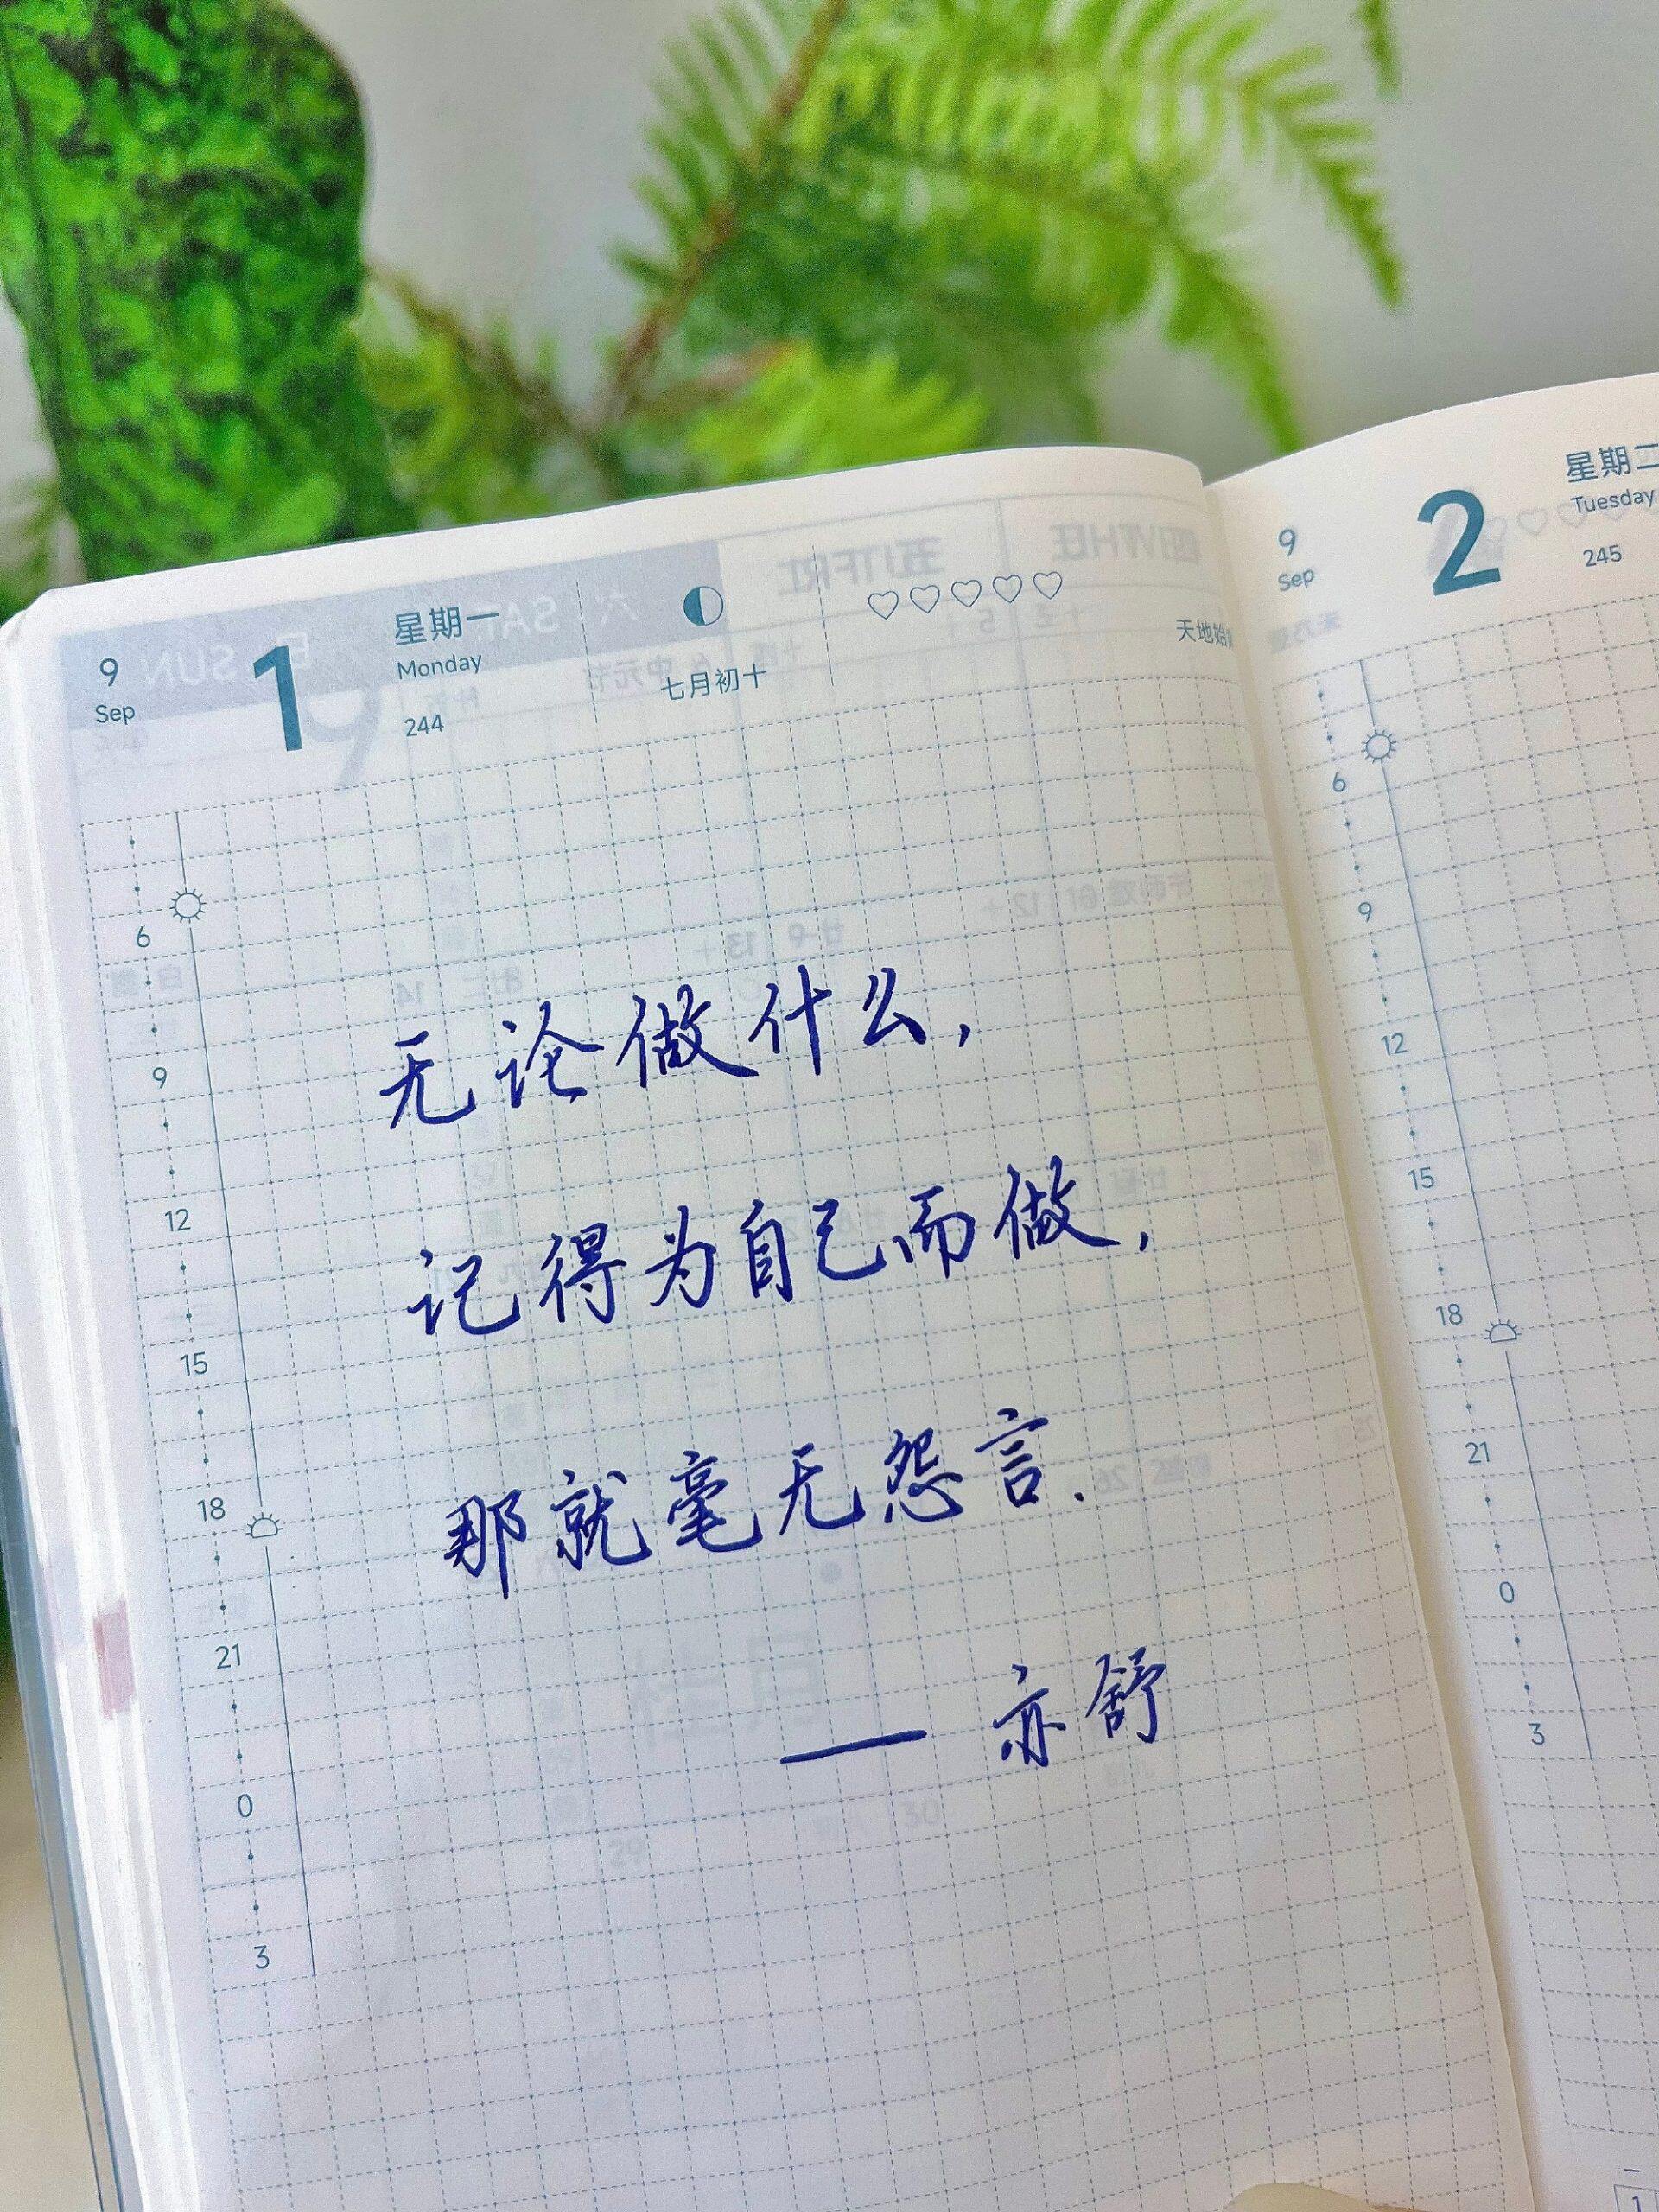 9
Sep
1
星期一
Monday
244
七月初十
天地始
无论做什么,
记得为自己而做,
那就毫无怨言.
—— 亦舒
6
9
12
15
18
21
0
3
9
Sep
2
星期二
Tuesday
245
6
9
12
15
18
21
0
3
1